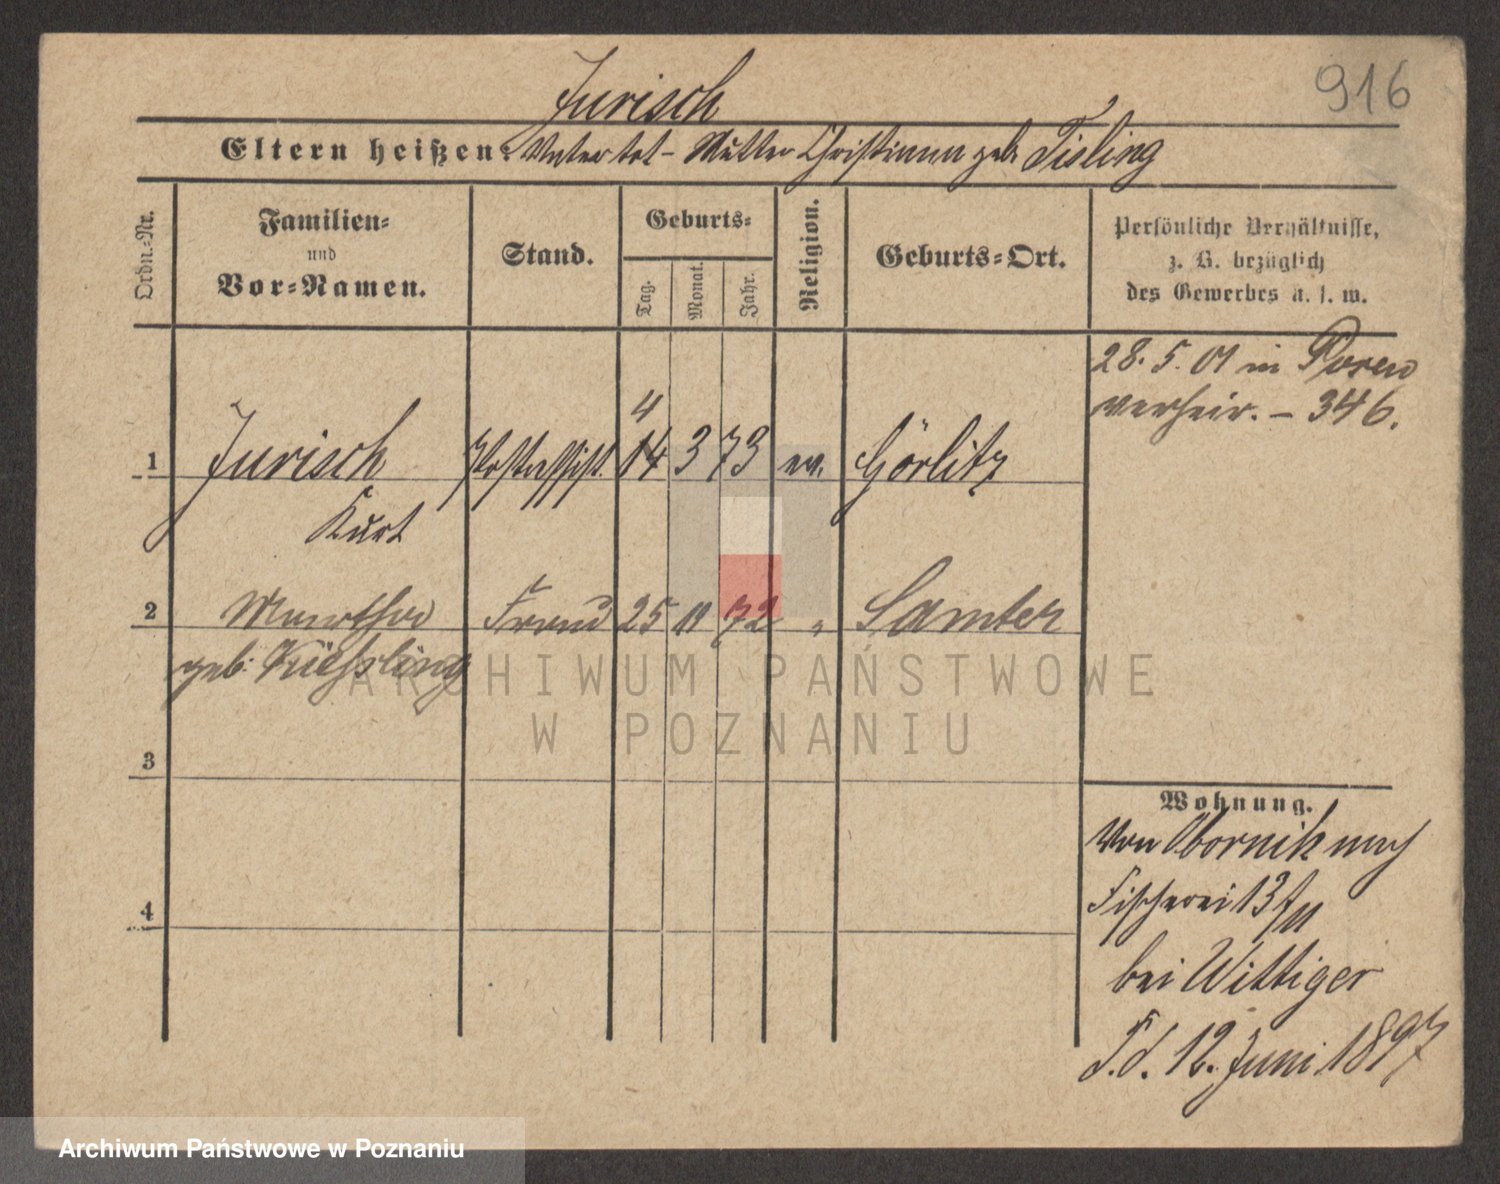 916
Jurisch
Eltern heißen: Vater tot – Mutter Christiana geb. Tisling
Ordn.-Nr.
Familien-
und
Vor-Namen.
Stand.
Geburts-
Tag.
Monat.
Jahr.
Religion.
Geburts-Ort.
Persönliche Verhältnisse,
z. B. bezüglich
des Gewerbes u. s. w.
28. 5. 01 in Posen
verheir. – 346.
4
1 Jurisch Postassist. 14 3 73 ev. Görlitz
Kurt
2 Martha Frau 25 11 72 " Samter
geb. Kießling
3
4
Wohnung.
Von Obornik nach
Fischerei 13/II
bei Wittiger
S.d. 12. Juni 1897
ARCHIWUM PAŃSTWOWE
W POZNANIU
Archiwum Państwowe w Poznaniu